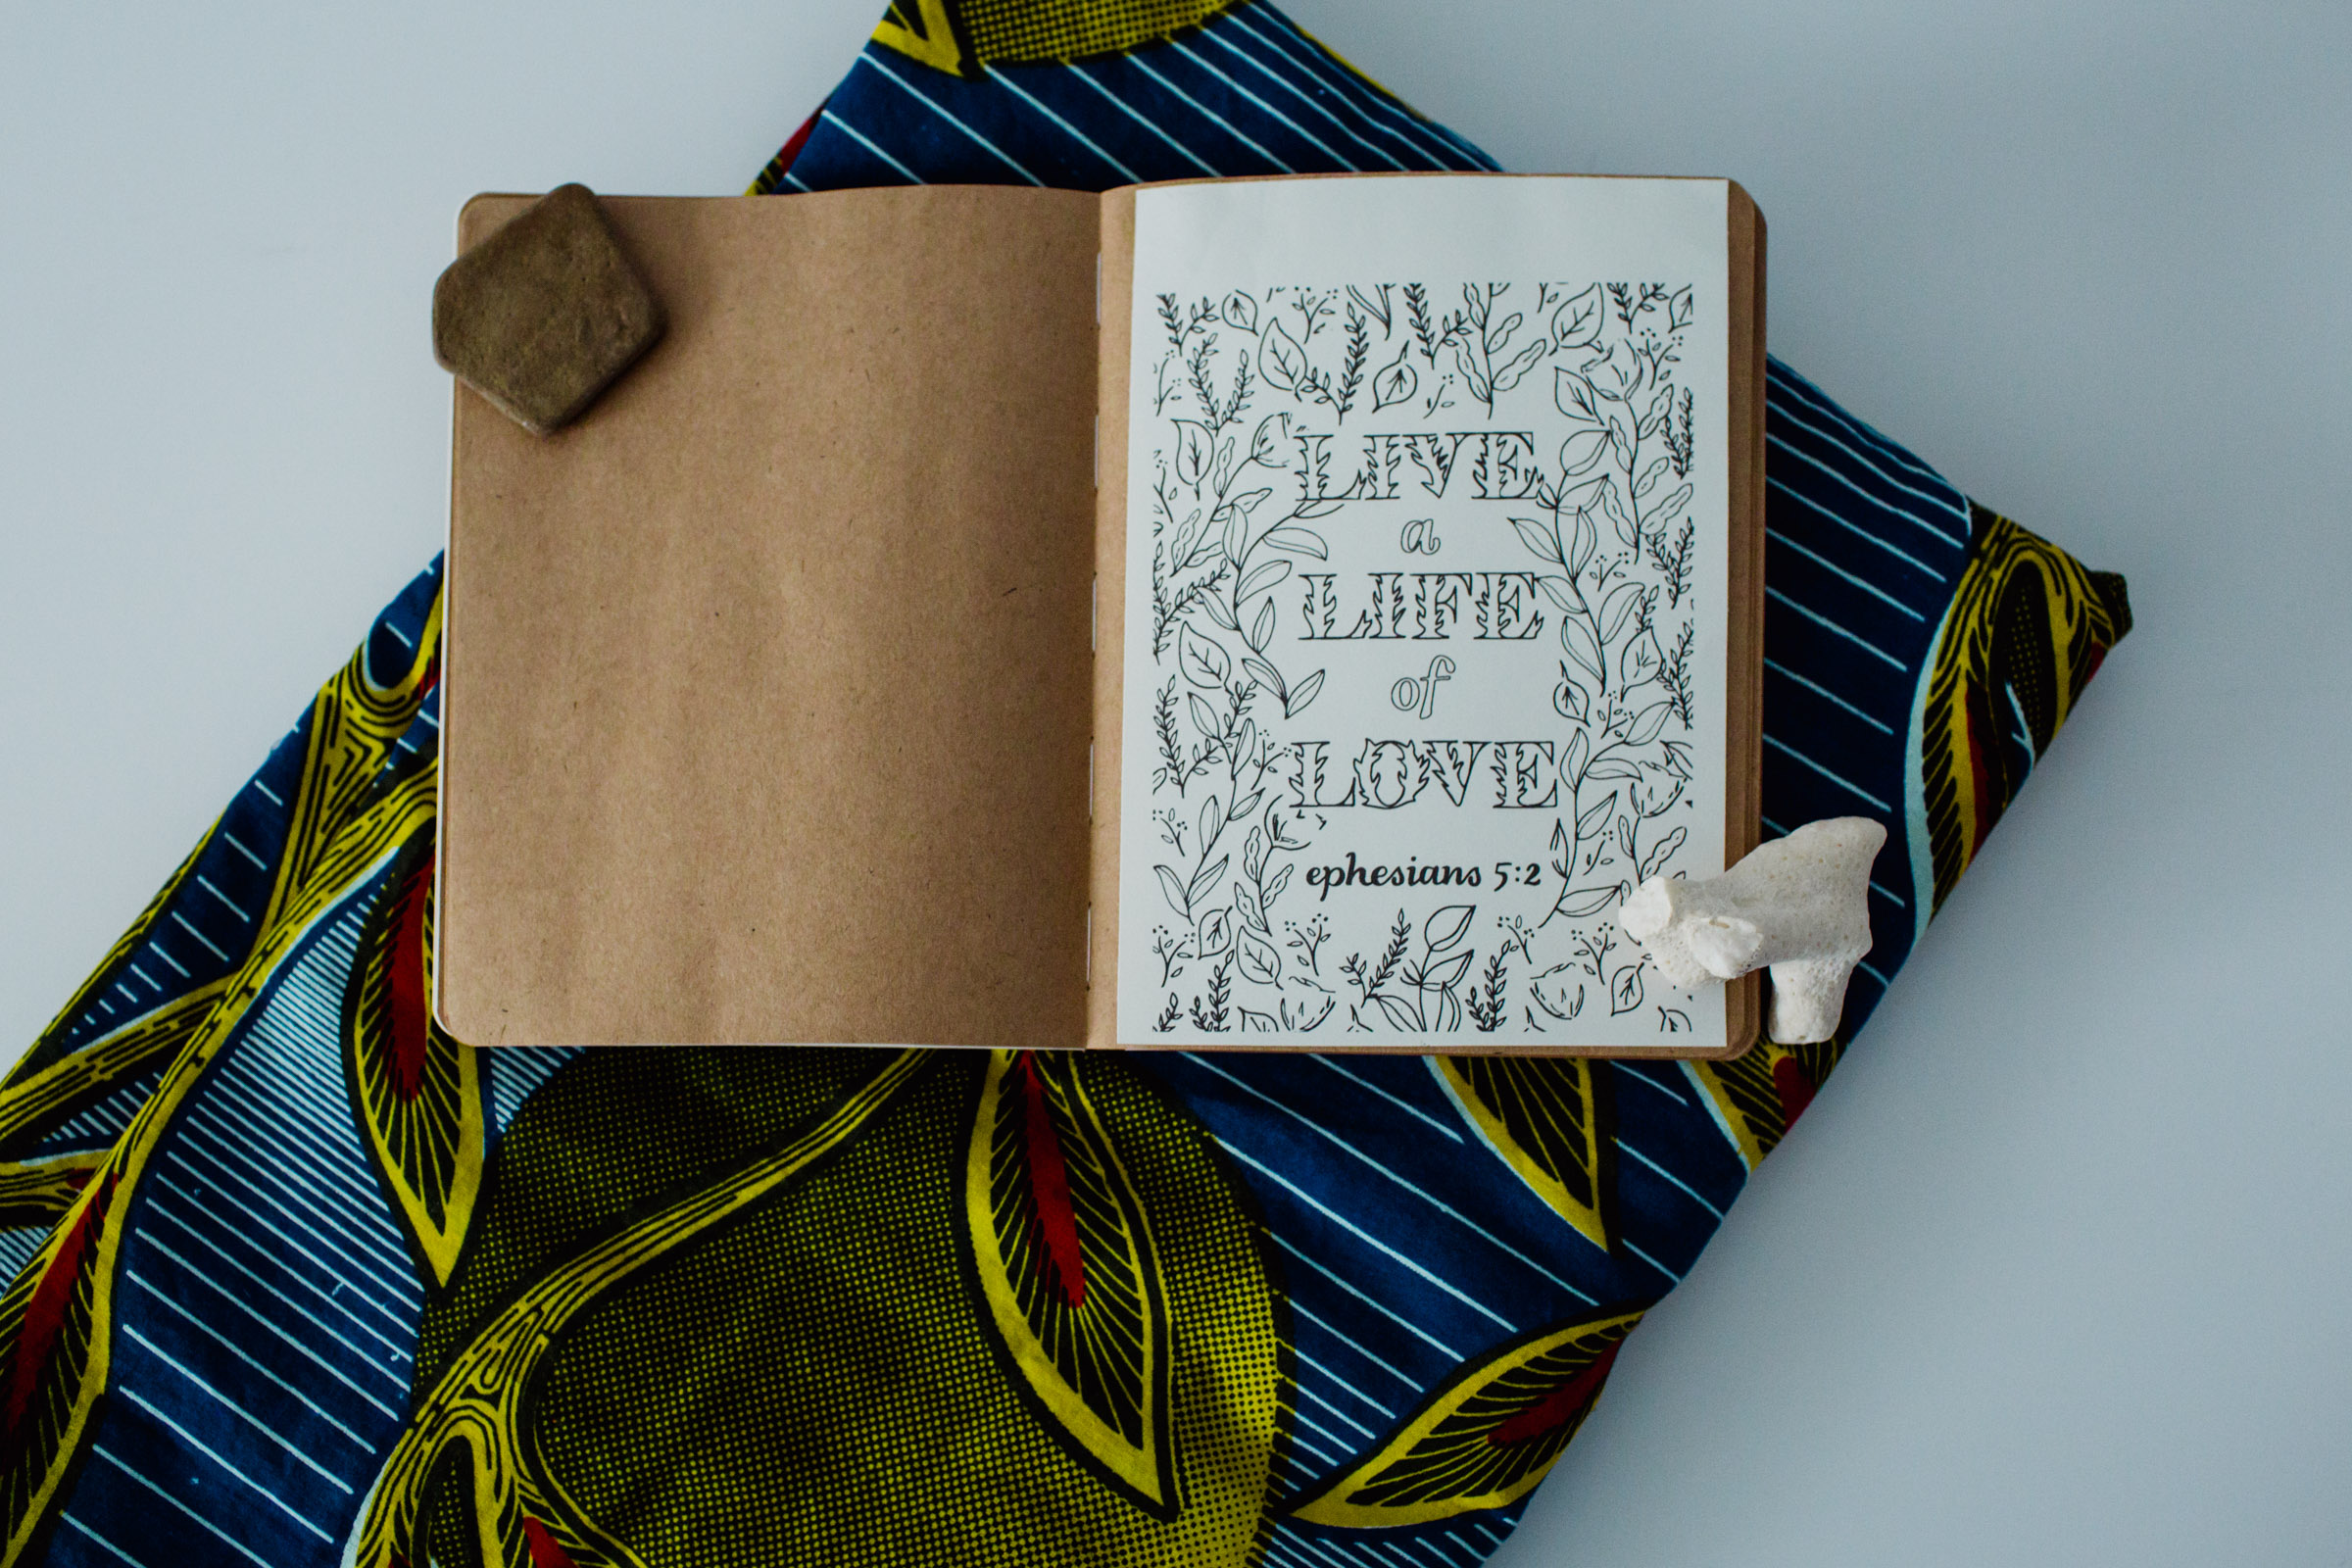 LIVE
a
LIFE
of
LOVE
ephesians 5:2